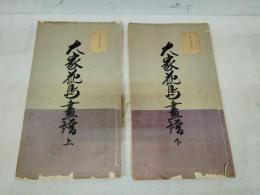 大家花鳥畫譜 上
大家花鳥畫譜 下